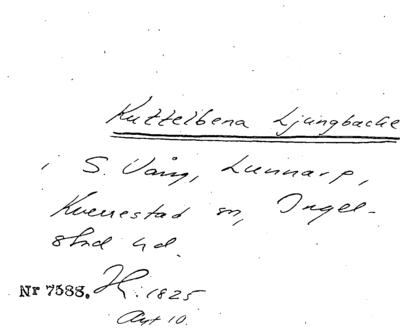 Kuttelbena Ljungbacke
i S. Vång, Lunnarp,
Kverrestad sn, Ingel-
stad hd.
Nr 7588. H. 1825
Avt 10.